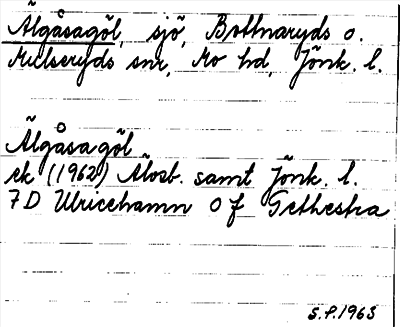 Älgåsagöl, sjö, Bottnaryds o.
Mulseryds snr, Mo hd, Jönk. l.
Älgåsagöl
ek (1962) Älvsb. samt Jönk. l.
7D Ulricehamn Of Gethestra
S.P. 1963